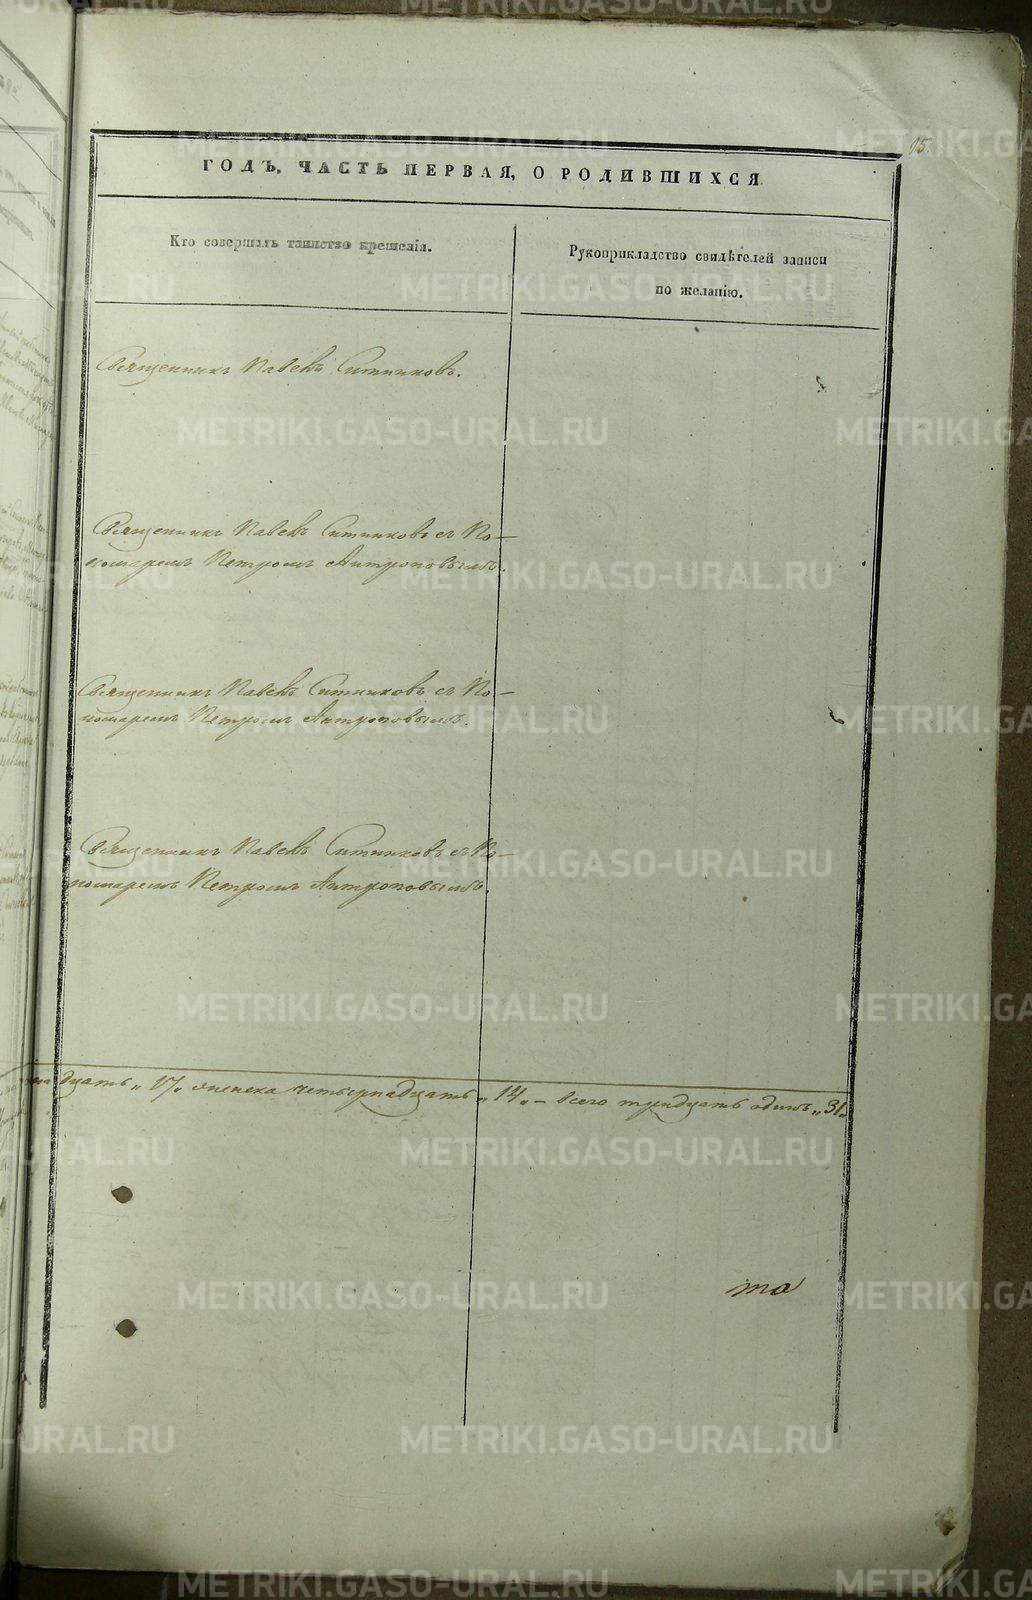 15.
ГОДЪ, ЧАСТЬ ПЕРВАЯ, О РОДИВШИХСЯ
Кто совершалъ таинство крещенія.
Рукоприкладство свидѣтелей записи
по желанію.
Священникъ Павелъ Ситниковъ.
Священникъ Павелъ Ситниковъ съ По-
номаремъ Петромъ Антроповымъ.
Священникъ Павелъ Ситниковъ съ По-
номаремъ Петромъ Антроповымъ.
Священникъ Павелъ Ситниковъ съ По-
номаремъ Петромъ Антроповымъ.
дцать „17„ женска четырнадцать „14„ – всего тридцать одинъ „31„
та
METRIKI.GASO-URAL.RU